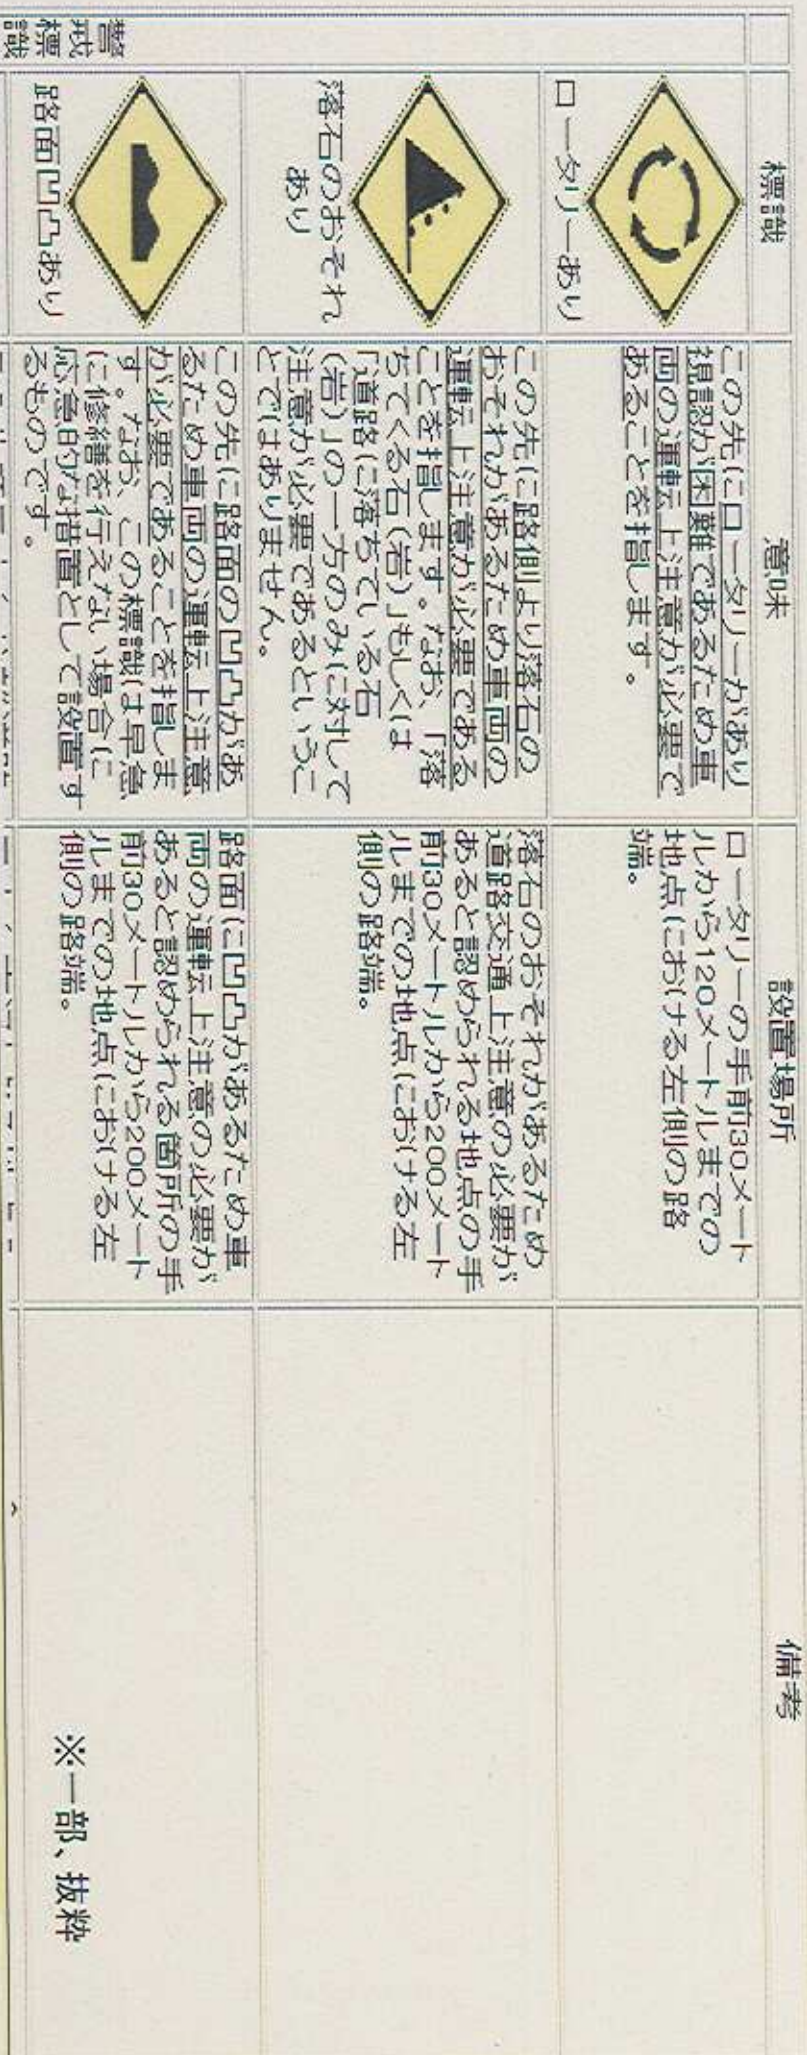 標識
意味
設置場所
備考
警
戒
標
識
ロータリーあり
この先にロータリーがあり
視認が困難であるため車
両の運転上注意が必要で
あることを指します。
ロータリーの手前30メート
ルから120メートルまでの
地点における左側の路
端。
落石のおそれ
あり
この先に路側より落石の
おそれがあるため車両の
運転上注意が必要である
ことを指します。なお、「落
ちてくる石(岩)」もしくは
「道路に落ちている石
(岩)」の一方のみに対して
注意が必要であるというこ
とではありません。
落石のおそれがあるため
道路交通上注意の必要が
あると認められる地点の手
前30メートルから200メート
ルまでの地点における左
側の路端。
路面凹凸あり
この先に路面の凹凸があ
るため車両の運転上注意
が必要であることを指しま
す。なお、この標識は早急
に修繕を行えない場合に
応急的な措置として設置す
るものです。
路面に凹凸があるため車
両の運転上注意の必要が
あると認められる箇所の手
前30メートルから200メート
ルまでの地点における左
側の路端。
※一部、抜粋